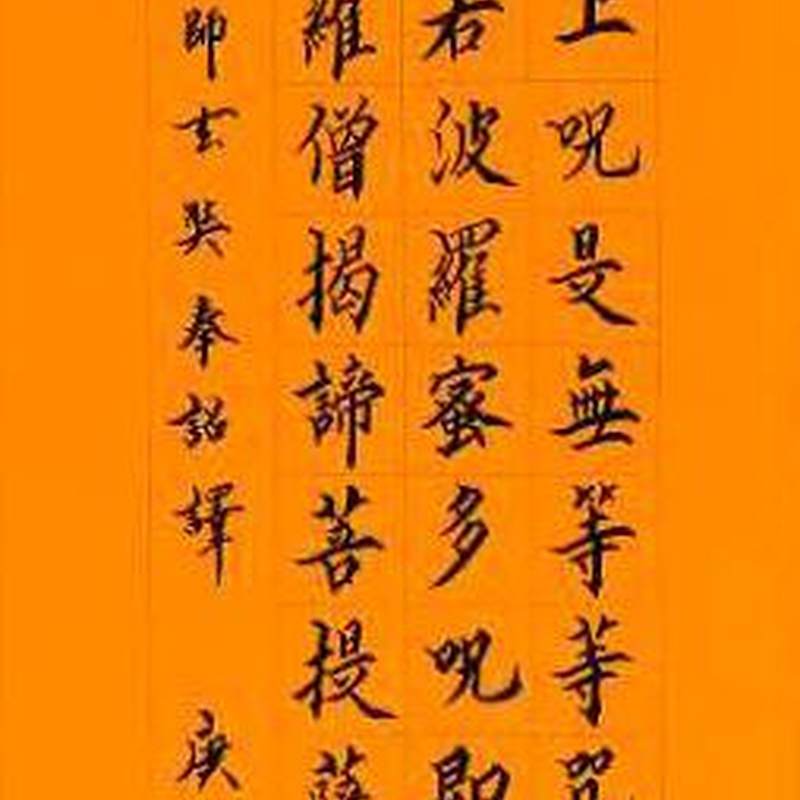 上呪是無等等咒
若波羅蜜多呪即
羅僧揭諦菩提薩
師玄奘奉詔譯 庚